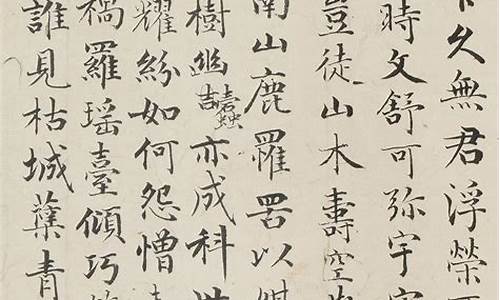 久無君浮榮
時文舒可弥宇
豈徒山木壽空
南山鹿罹罟以
樹幽蠹亦成科
耀紛如何怨憎
禍羅瑶臺傾巧
誰見枯城蘗青